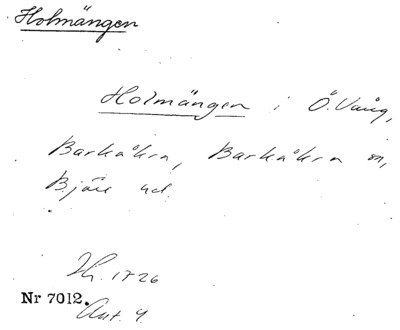 Holmängen
Holmängen i Ö. Vång,
Barkåkra, Barkåkra sn,
Bjäre hd
Th. 1726
Nr 7012.
Akt. 4